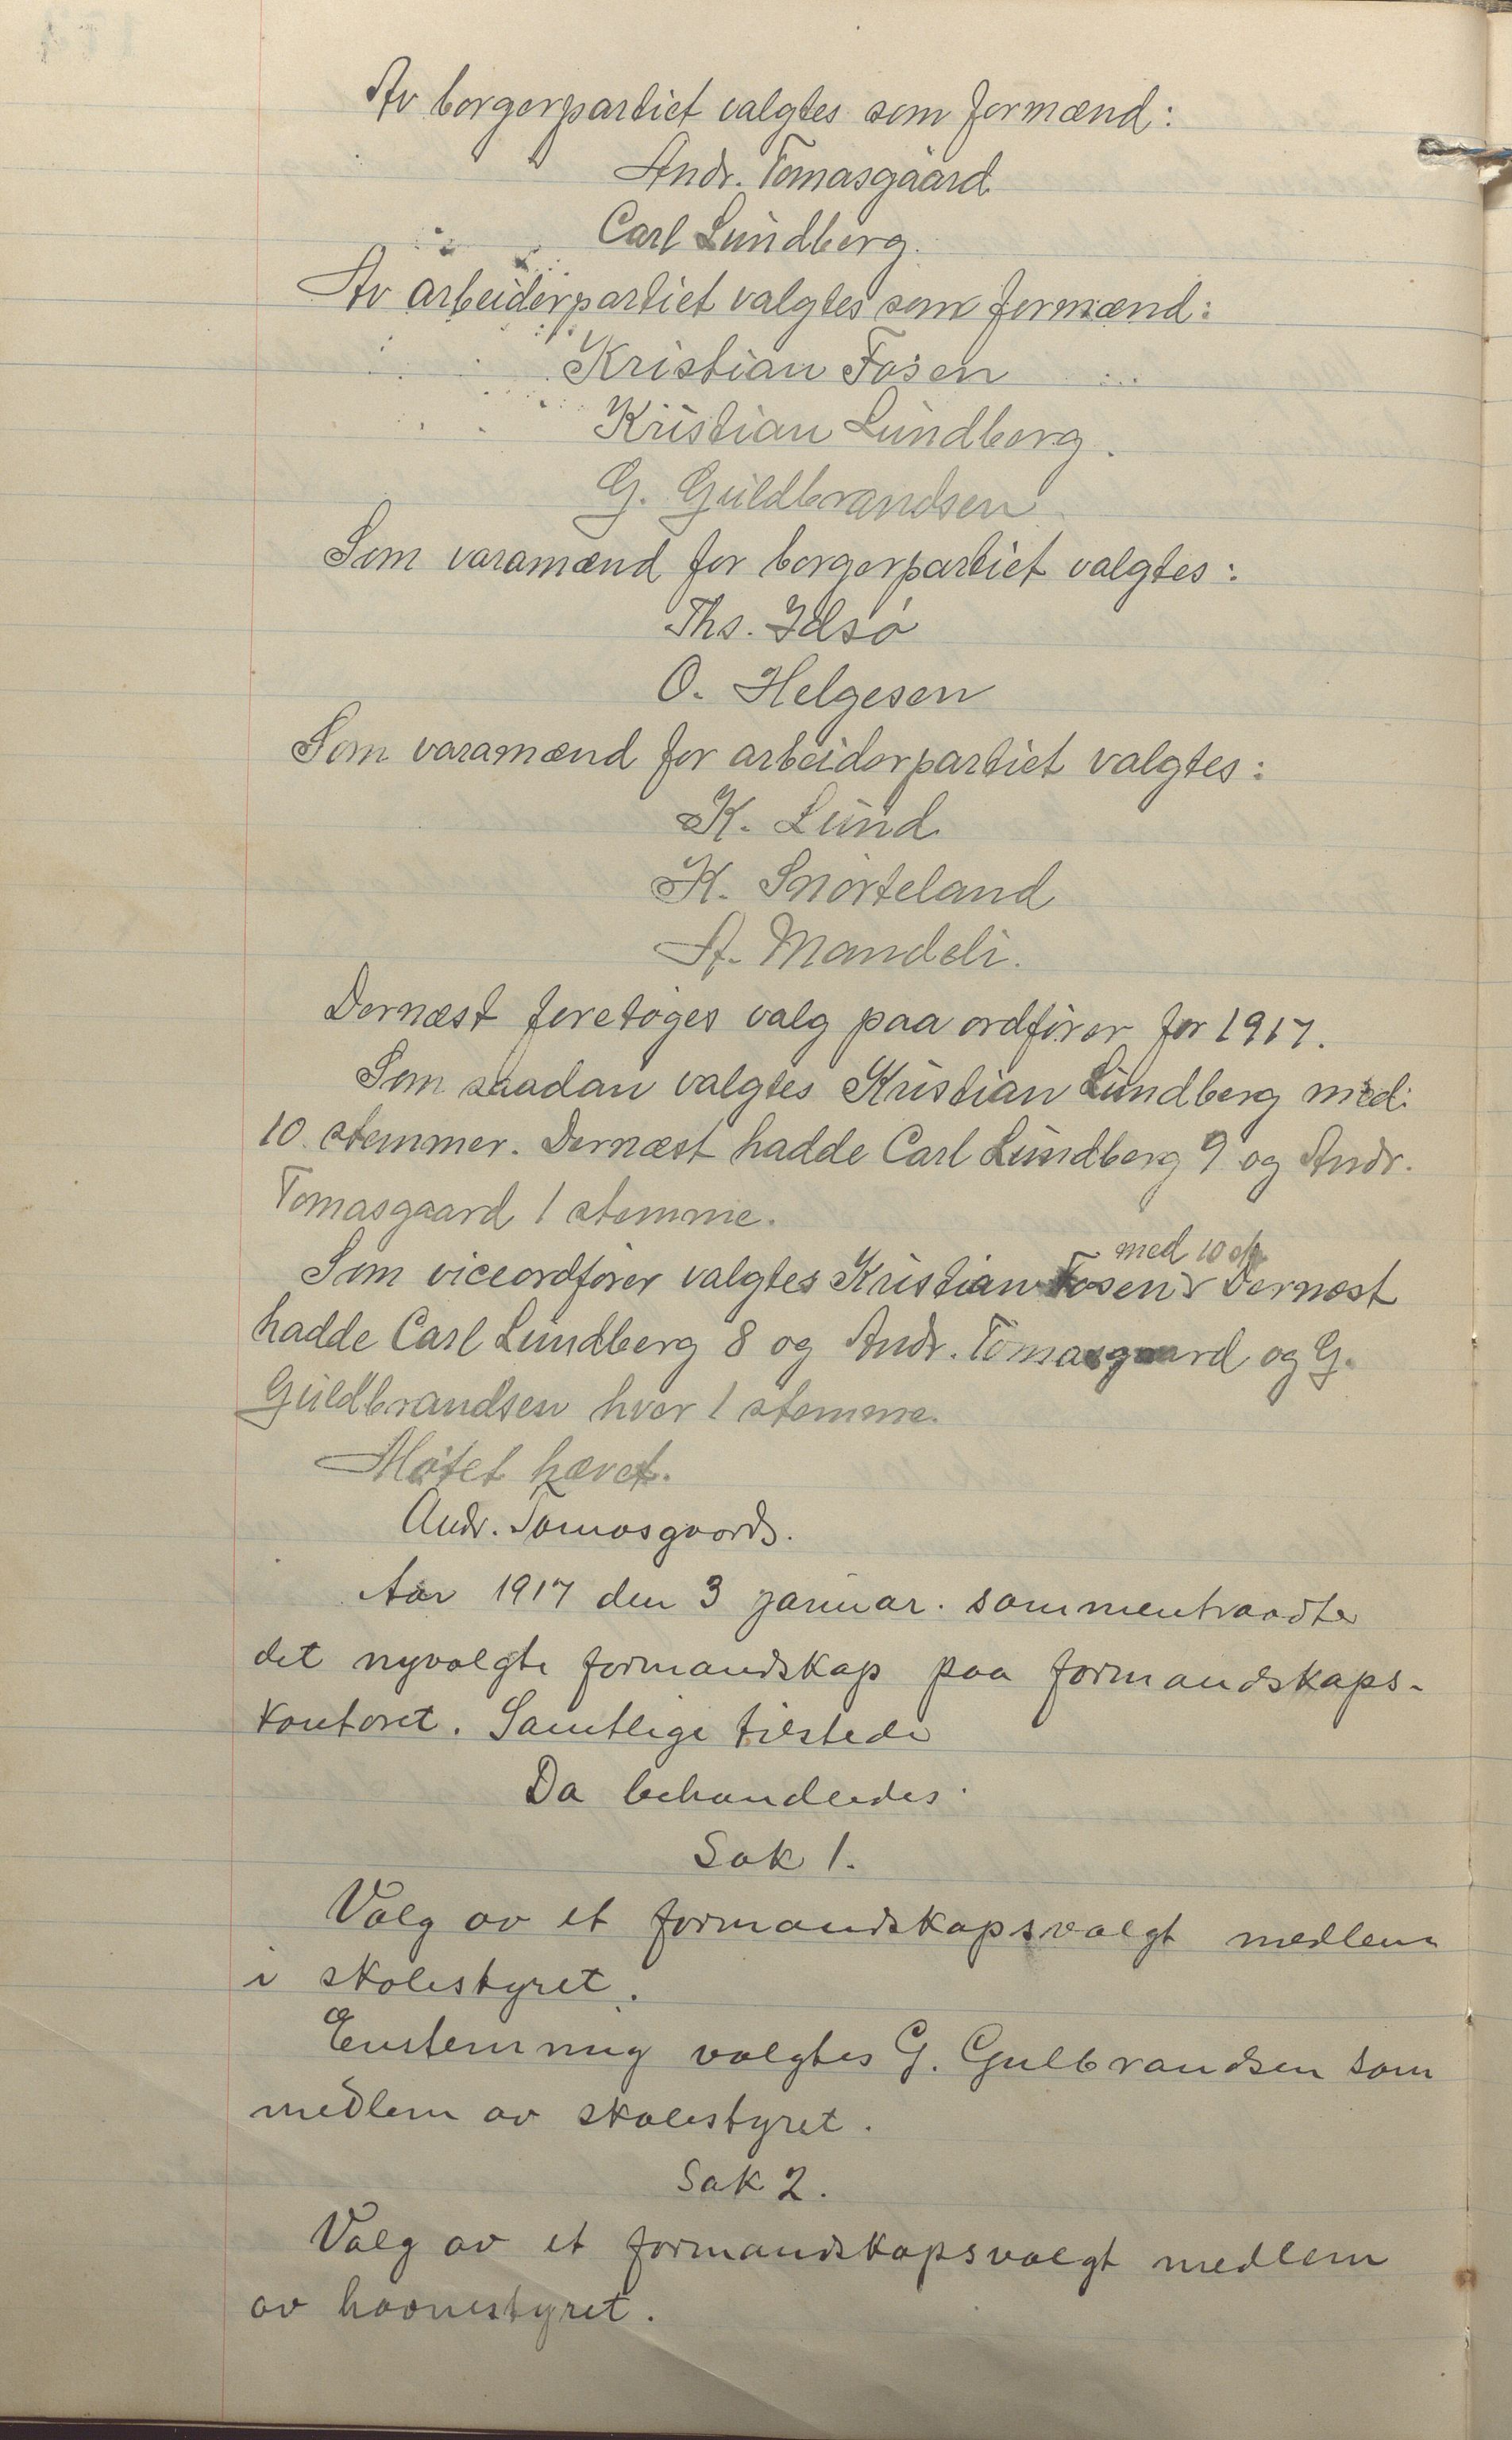 Av borgerpartiet valgtes som formænd:
Andr. Tomasgaard
Carl Lundberg.
Av arbeiderpartiet valgtes som formænd:
Kristian Fosen
Kristian Lundberg.
G. Guldbrandsen
Som varamænd for borgerpartiet valgtes:
Ths. Idsø
O. Helgesen
Som varamænd for arbeiderpartiet valgtes:
K. Lund
K. Snørteland
A. Mandeli.
Dernæst foretoges valg paa ordfører for 1917.
Som saadan valgtes Kristian Lundberg med
10 stemmer. Dernæst hadde Carl Lundberg 9 og Andr.
Tomasgaard 1 stemme.
med 10 st.
Som viceordfører valgtes Kristian Fosen. Dernæst
hadde Carl Lundberg 8 og Andr. Tomasgaard og G.
Guldbrandsen hver 1 stemme.
Møtet hævet.
Andr. Tomasgaard.
Aar 1917 den 3 januar. sammentraadte
det nyvalgte formandskap paa formandskaps-
kontoret. Samtlige tilstede
Da behandledes
Sak 1.
Valg av et formandskapsvalgt medlem
i skolestyret.
Enstemmig valgtes G. Gulbrandsen som
medlem av skolestyret.
Sak 2.
Valg av et formandskapsvalgt medlem
av havnestyret.